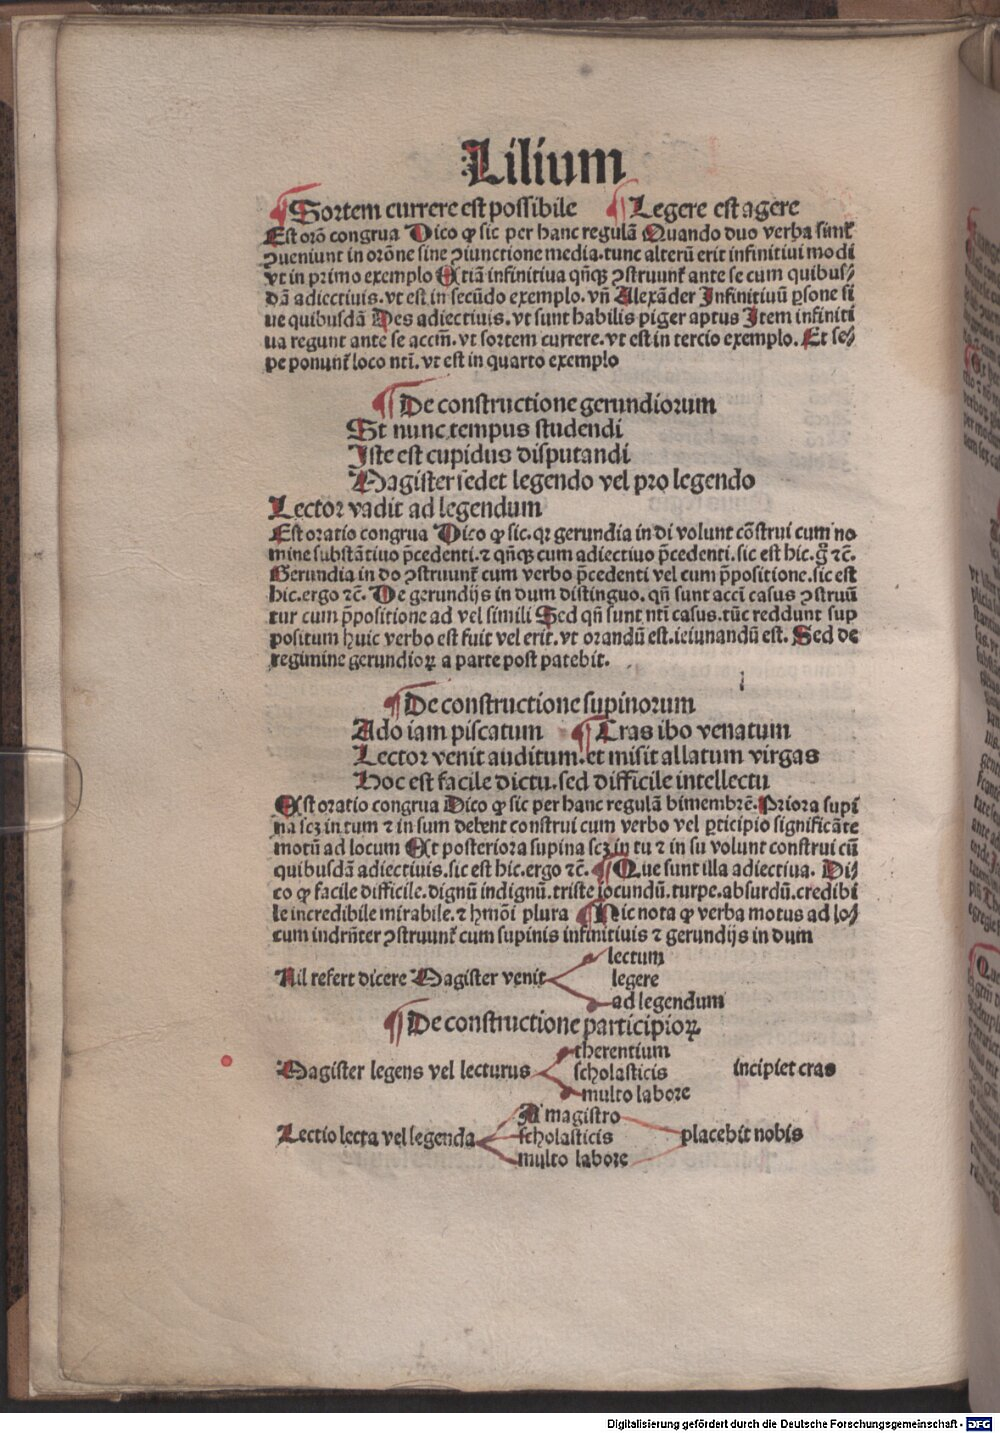 Lilium
¶ Sortem currere est possibile ¶ Legere est agere
Est orõ congrua Dico ꝙ sic per hanc regulã Quando duo verba simłꝛ
ↄueniunt in orõne sine ↄiunctione media. tunc alterũ erit infinitiui modi
vt in primo exemplo Etiã infinitiua qñqꝫ ↄstruunt᷑ ante se cum quibus⸗
dã adiectiuis. vt est in secũdo exemplo. vñ Alexãder Infinitiuũ ꝑsone si
ue quibusdã Des adiectiuis. vt sunt habilis piger aptus Item infiniti
ua regunt ante se accm̃. vt sortem currere. vt est in tercio exemplo. Et se⸗
pe ponunt᷑ loco ntĩ. vt est in quarto exemplo
¶ De constructione gerundiorum
St nunc tempus studendi
Iste est cupidus disputandi
Magister sedet legendo vel pro legendo
Lector vadit ad legendum
Est oratio congrua Dico ꝙ sic. qꝛ gerundia in di volunt cõstrui cum no
mine substãtiuo p̃cedenti. ⁊ qñqꝫ cum adiectiuo p̃cedenti. sic est hic. g̃ ⁊c̃.
Gerundia in do ↄstruunt᷑ cum verbo p̃cedenti vel cum p̃positione. sic est
hic. ergo ⁊c̃. De gerundijs in dum distinguo. qñ sunt accĩ casus ↄstruũ
tur cum p̃positione ad vel simili Sed qñ sunt ntĩ casus. tũc reddunt sup
positum huic verbo est fuit vel erit. vt orandũ est. ieiunandũ est. Sed de
regimine gerundioꝝ a parte post patebit.
¶ De constructione supinorum
Ado iam piscatum ¶ Cras ibo venatum
Lector venit auditum. et misit allatum virgas
Hoc est facile dictu. sed difficile intellectu
Est oratio congrua Dico ꝙ sic per hanc regulã bimembrẽ. Priora supi
na scꝫ in tum ⁊ in sum debent construi cum verbo vel ꝑticipio significãte
motũ ad locum Et posteriora supina scꝫ in tu ⁊ in su volunt construi cũ
quibusdã adiectiuis. sic est hic. ergo ⁊c̃. ¶ Que sunt illa adiectiua. Di⸗
co ꝙ facile difficile. dignũ indignũ. triste iocundũ. turpe. absurdũ. credibi
le incredibile mirabile. ⁊ hmõi plura ¶ Hic nota ꝙ verba motus ad lo⸗
cum indrñter ↄstruunt᷑ cum supinis infinitiuis ⁊ gerundijs in dum
Nil refert dicere Magister venit
lectum
legere
ad legendum
¶ De constructione participioꝝ
Magister legens vel lecturus
therentium
scholasticis
multo labore
incipiet cras
Lectio lecta vel legenda
A magistro
scholasticis
multo labore
placebit nobis
Digitalisierung gefördert durch die Deutsche Forschungsgemeinschaft - DFG